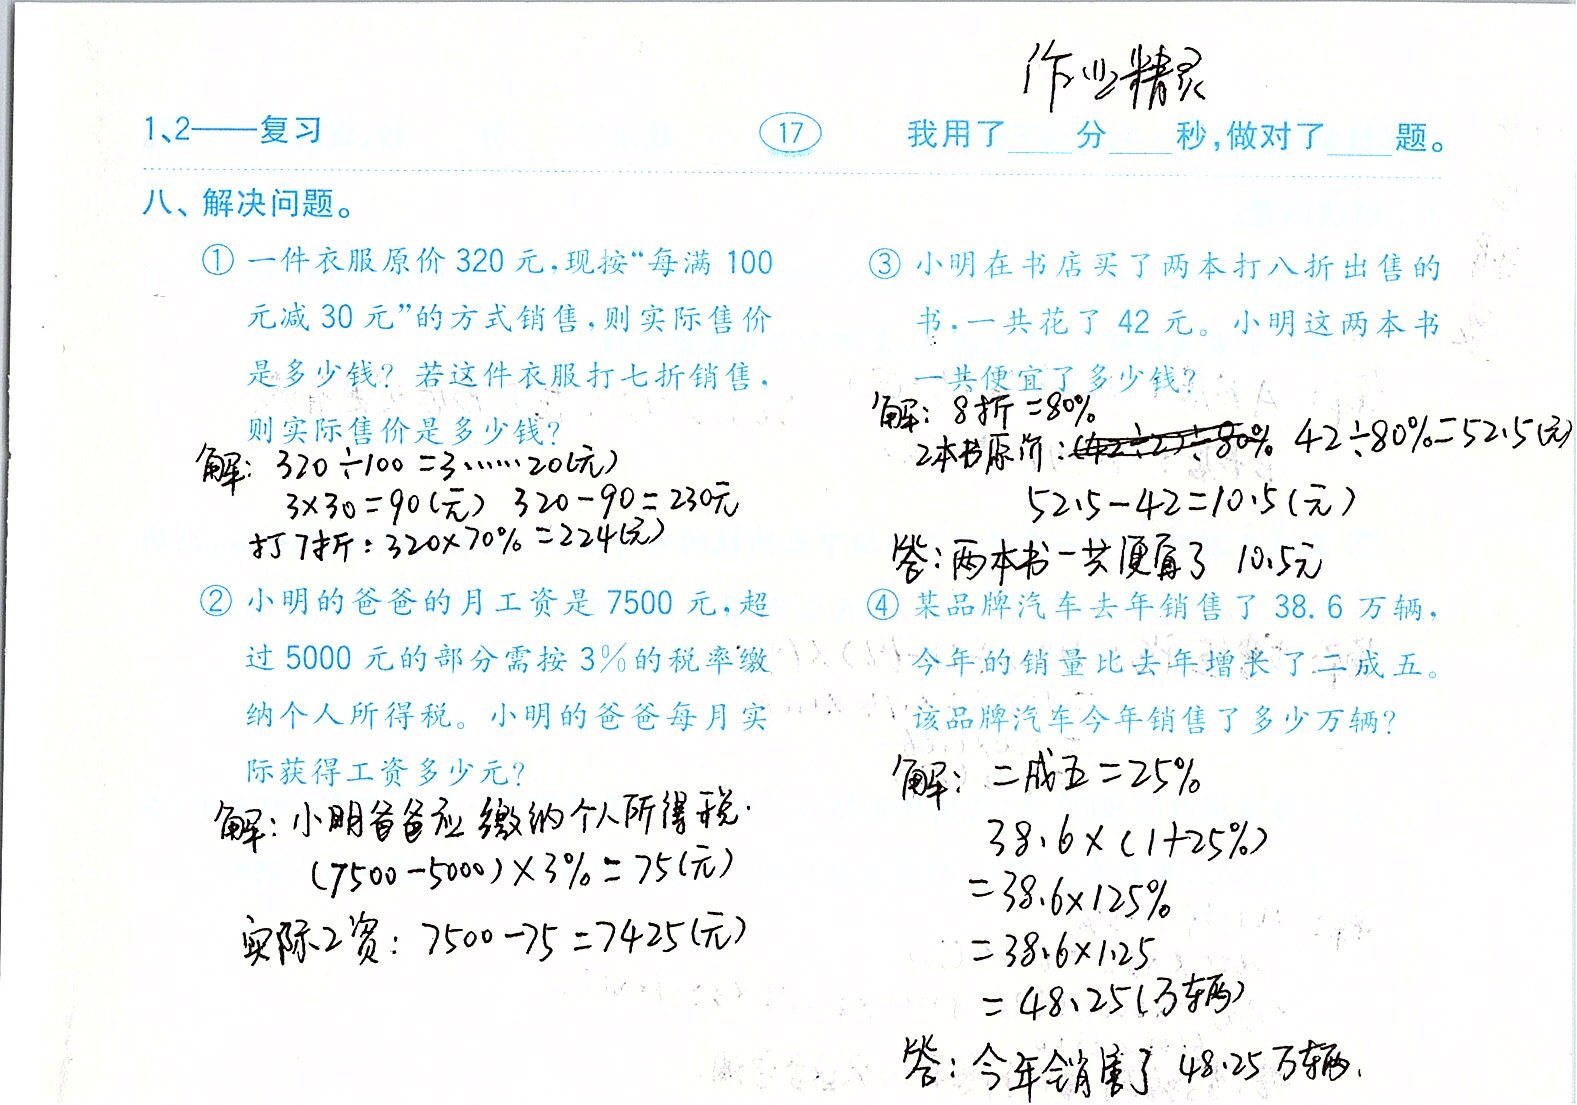 作业精灵
1、2——复习
17
我用了____分____秒,做对了____题。
八、解决问题。
① 一件衣服原价 320 元,现按“每满 100
元减 30 元”的方式销售,则实际售价
是多少钱? 若这件衣服打七折销售,
则实际售价是多少钱?
解: 320÷100=3……20(元)
3×30=90(元) 320-90=230元
打7折: 320×70%=224(元)
② 小明的爸爸的月工资是 7500 元,超
过 5000 元的部分需按 3%的税率缴
纳个人所得税。小明的爸爸每月实
际获得工资多少元?
解: 小明爸爸应缴纳个人所得税.
(7500-5000)×3%=75(元)
实际工资: 7500-75=7425(元)
③ 小明在书店买了两本打八折出售的
书,一共花了 42 元。小明这两本书
一共便宜了多少钱?
解: 8折=80%
2本书原价: (42÷2)÷80% 42÷80%=52.5(元)
52.5-42=10.5(元)
答: 两本书一共便宜了 10.5元
④ 某品牌汽车去年销售了 38.6 万辆,
今年的销量比去年增长了二成五。
该品牌汽车今年销售了多少万辆?
解: 二成五=25%
38.6×(1+25%)
=38.6×125%
=38.6×1.25
=48.25(万辆)
答: 今年销售了 48.25万辆.